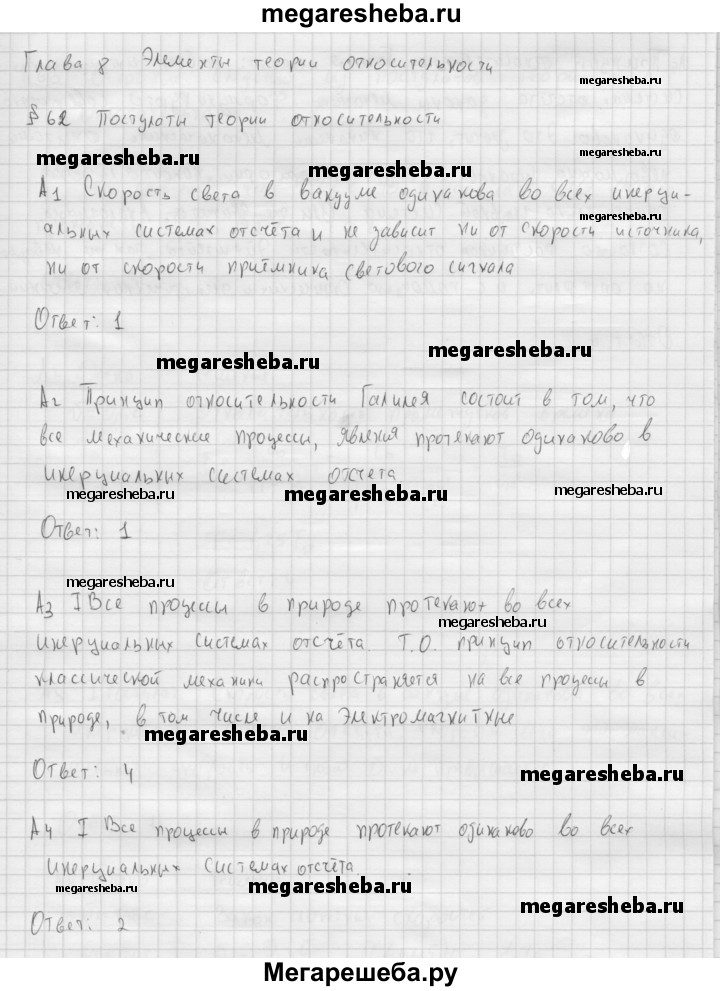 megaresheba.ru
Глава 8 Элементы теории относительности
megaresheba.ru
§ 62 Постулаты теории относительности
megaresheba.ru
megaresheba.ru
megaresheba.ru
А1 Скорость света в вакууме одинакова во всех инерци-
megaresheba.ru
альных системах отсчёта и не зависит ни от скорости источника,
ни от скорости приёмника светового сигнала
Ответ: 1
megaresheba.ru
megaresheba.ru
А2 Принцип относительности Галилея состоит в том, что
все механические процессы, явления протекают одинаково в
инерциальных системах отсчета
megaresheba.ru
megaresheba.ru
megaresheba.ru
Ответ: 1
megaresheba.ru
А3 I Все процессы в природе протекают во всех
megaresheba.ru
инерциальных системах отсчёта. Т.О. принцип относительности
классической механики распространяется на все процессы в
природе, в том числе и на электромагнитные
megaresheba.ru
Ответ: 4
megaresheba.ru
А4 I Все процессы в природе протекают одинаково во всех
инерциальных системах отсчёта.
megaresheba.ru
megaresheba.ru
megaresheba.ru
Ответ: 2
Мегарешеба.ру